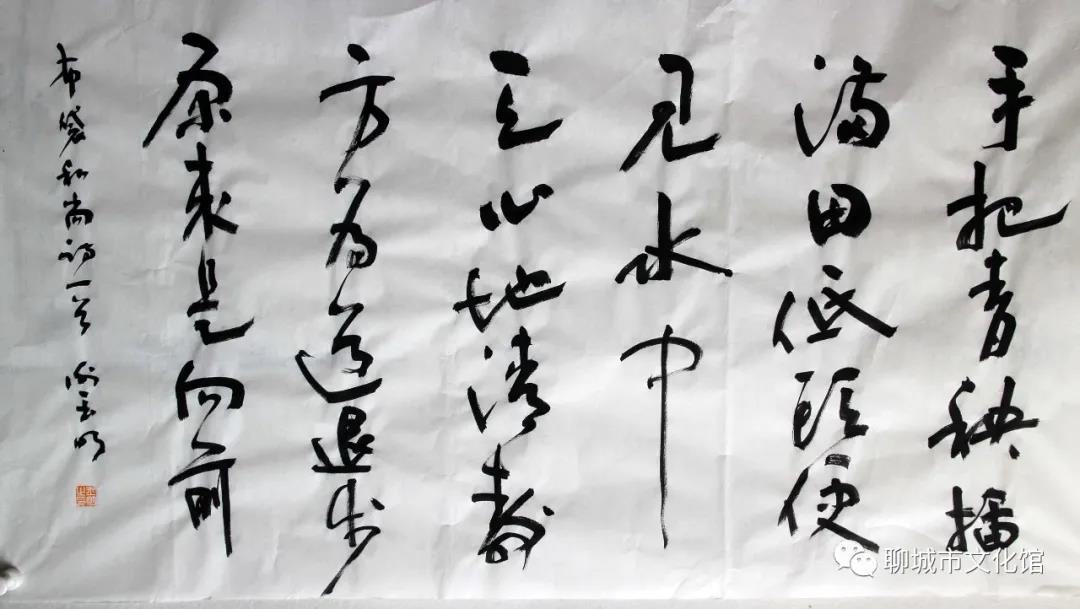 手把青秧播
满田低头便
见水中
天心地清静
方为道退步
原来是向前
布袋和尚诗一首
聊城市文化馆